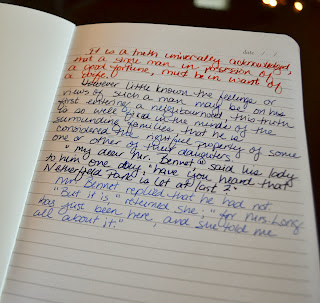 DATE / /
It is a truth universally acknowledged,
that a single man in posession of
a good fortune, must be in want of
a wife.
However little known the feelings or
views of such a man may be on his
first entering a neighbourhood, this truth
is so well fixed in the minds of the
surrounding families, that he is
considered the rightful property of some
one or other of their daughters.
"My dear Mr. Bennet" said his lady
to him one day, "have you heard that
Netherfield Park is let at last?"
Mr. Bennet replied that he had not.
"But it is," returned she; "for Mrs. Long
has just been here, and she told me
all about it."